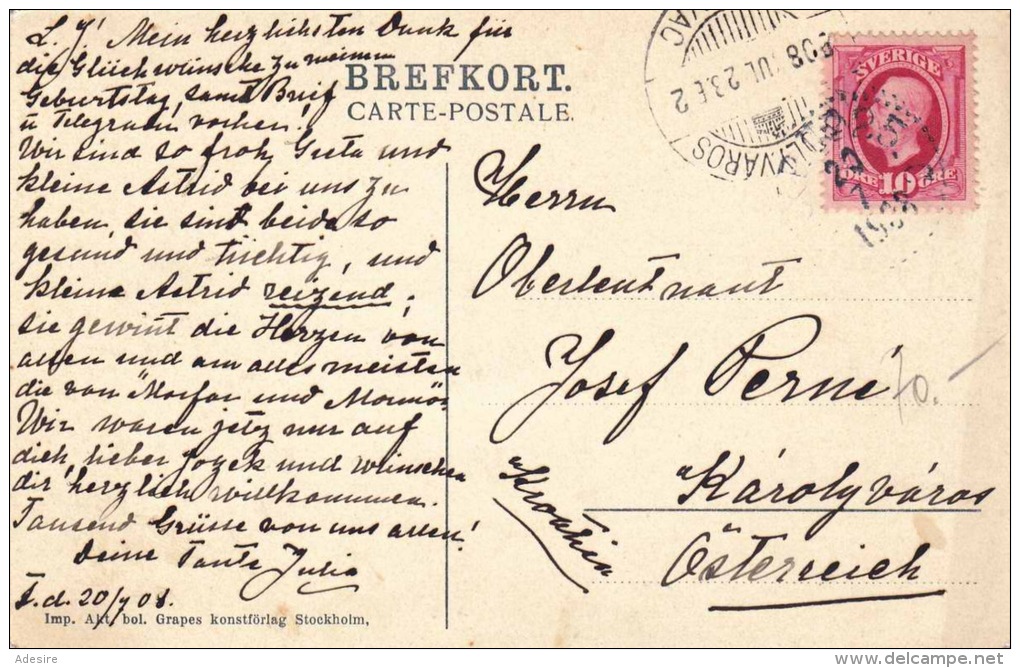 L. J! Mein herzlichsten Dank für
die Glückwünsche zu meinem
Geburtstag, samt Brief
u Telegramm vorher!
Wir sind so froh, Greta und
kleine Astrid bei uns zu
haben, sie sind beide so
gesund und tüchtig, und
kleine Astrid reizend,
sie gewint die Herzen von
allen und am alles meisten
die von Morfar und Mormor.
Wir waren jetz nur auf
dich, lieber Jozek und wünschen
dir herzlich willkommen.
Tausend Grüsse von uns allen!
Deine Tante Julia
F. d. 20/7 08.
Imp. Akt. bol. Grapes konstförlag Stockholm,
BREFKORT.
CARTE-POSTALE.
908 JUL 23. E 2
VÁROS
SVERIGE
ÖRE 10 ÖRE
Herrn
Oberleutnant
Josef Perné
70.-
Károlyváros
Kroatien
Österreich
Adesire
delcampe.net